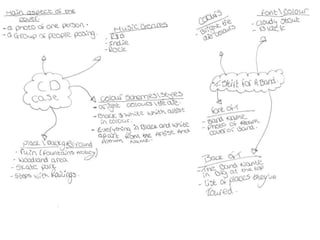 Main aspect of the
cover
- a photo of one person.
- a Group of people posing.
Music Genres
- R&B
- Indie
- Rock
CD
case
Colour schemes/styles
colours
- Black & white with artist
in colour.
- Everything is Black and white
apart from the Artist And
Album Name.
Place/Background
- Ruin (fountains Abbey)
- Woodland area
- Skate park
- Steps with Railings.
Colours
- Bright
colours
font/colour
- cloudy
T-Shirt for a Band.
Front of T
- Band Name
- Photo of Album
cover or Band.
Back of T
- The Band Name
in Big at the top
- List of places they've
Toured.